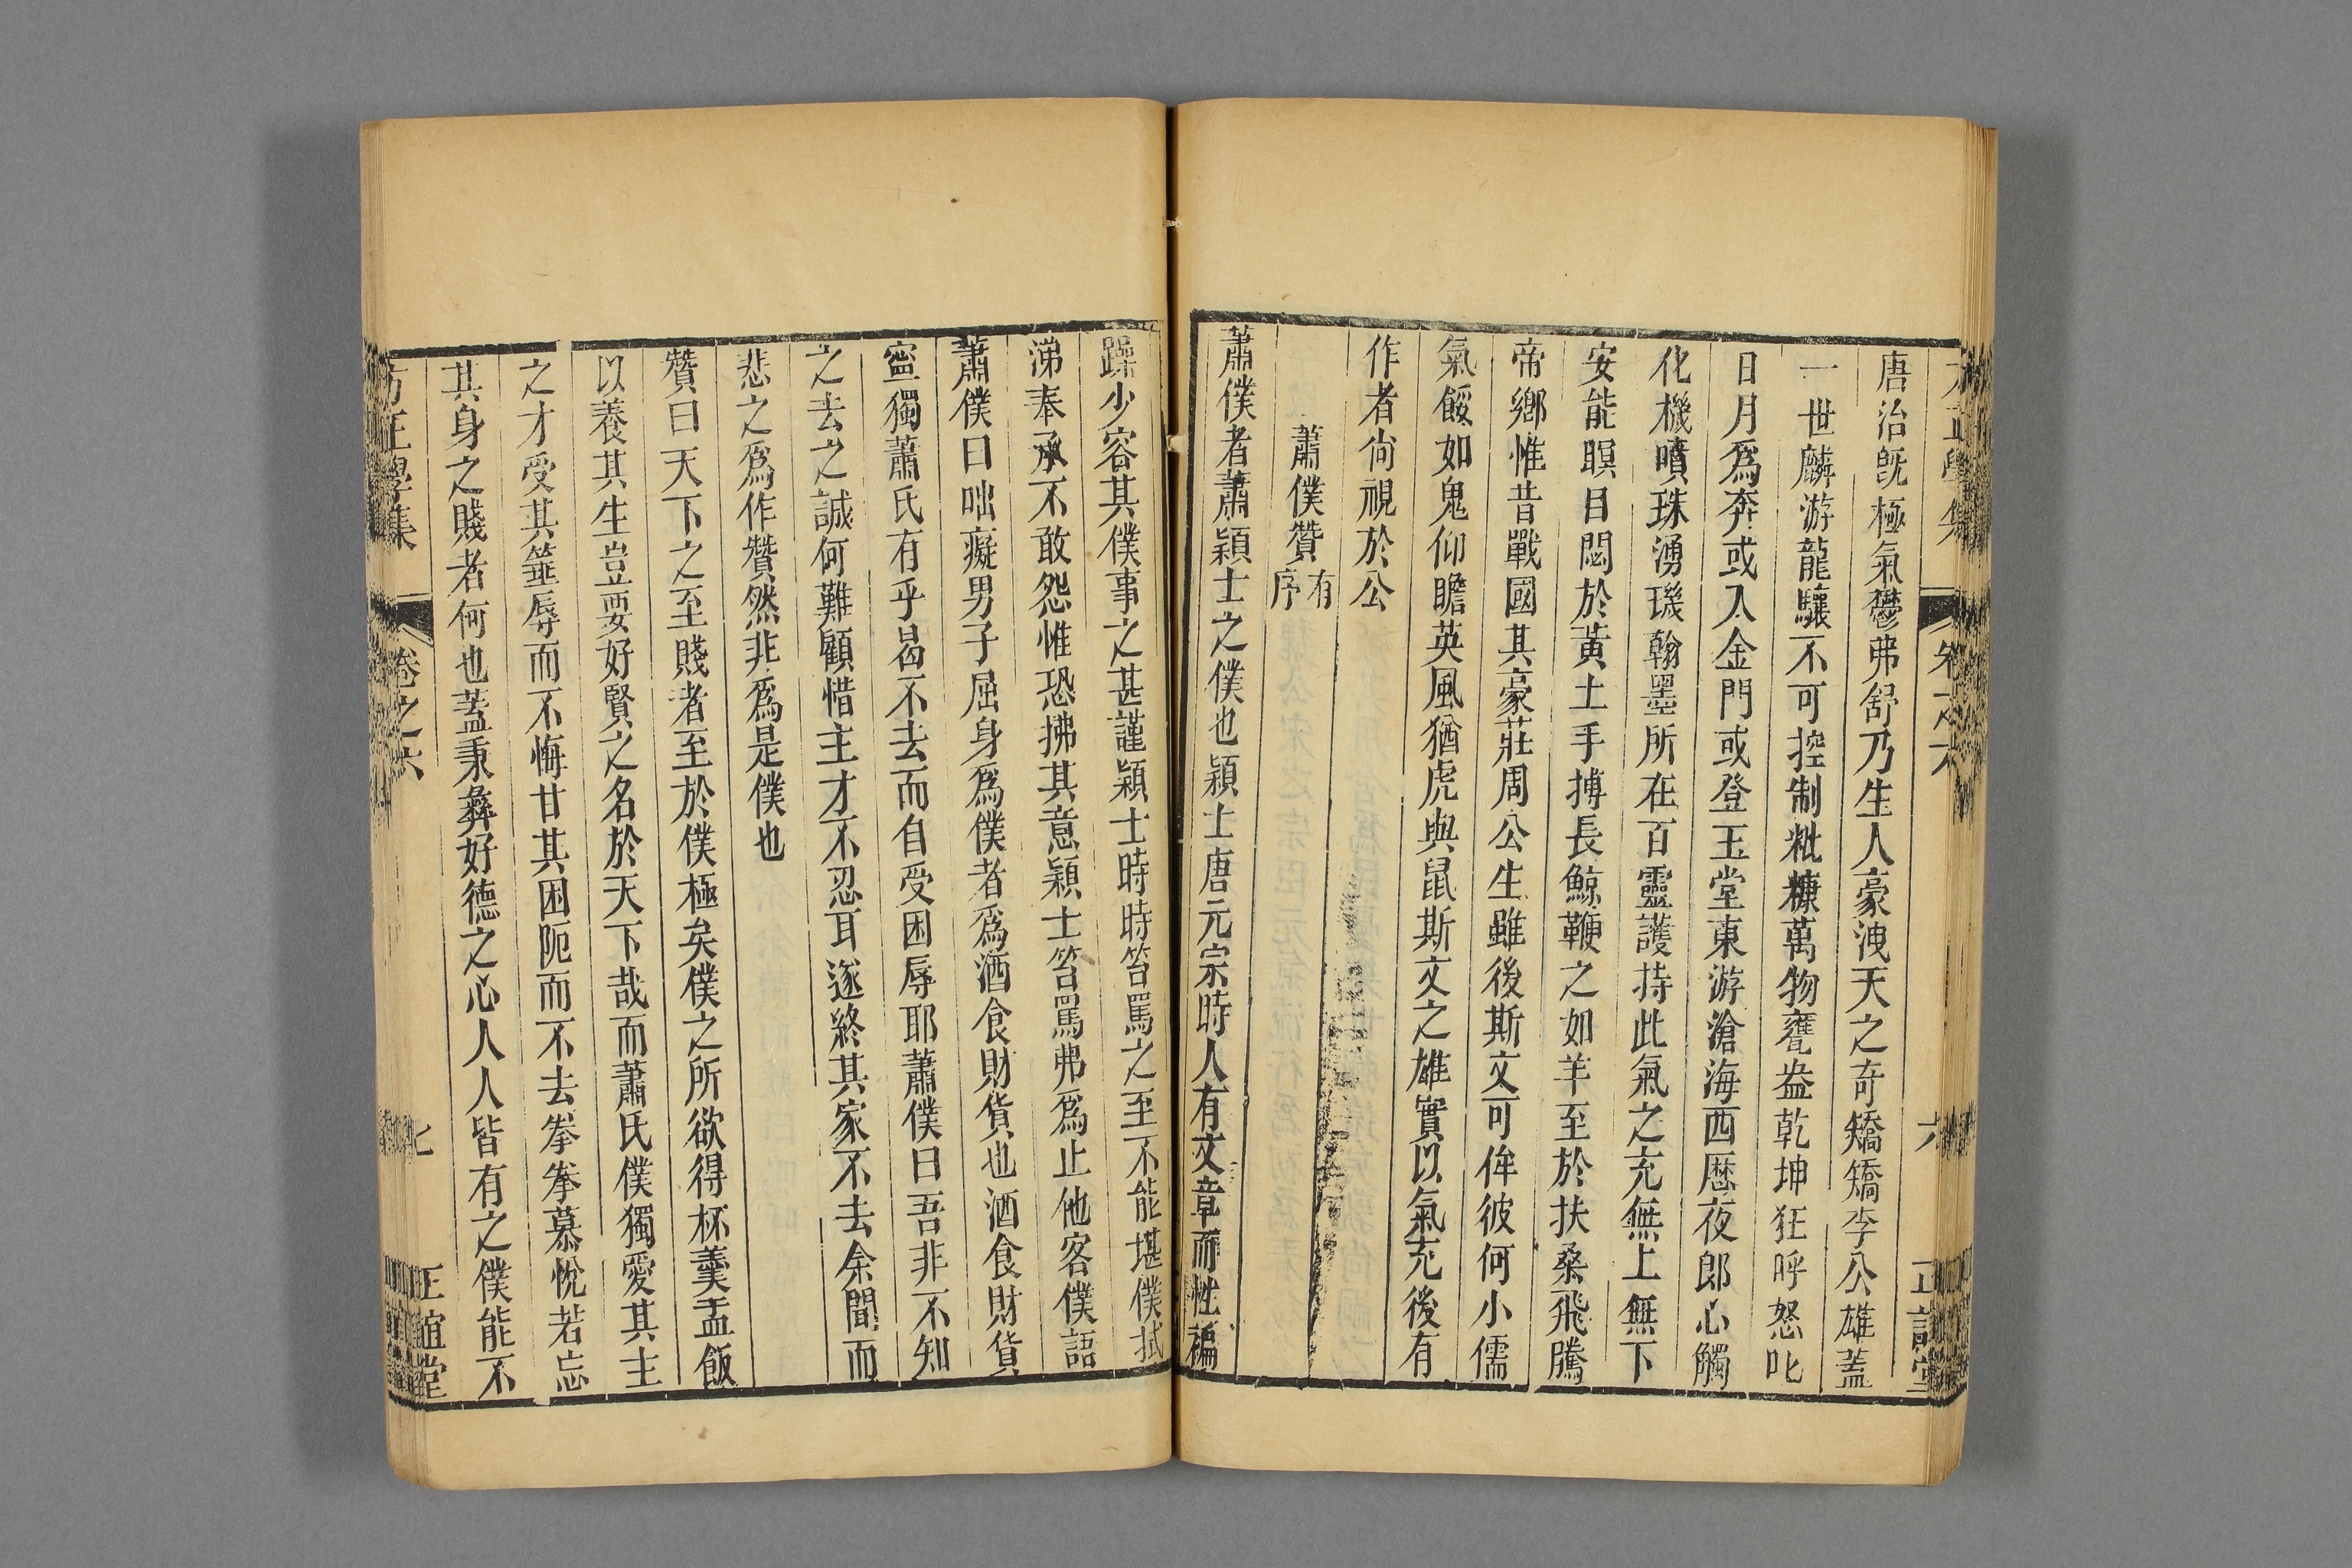 唐治旣極氣鬱弗舒乃生人豪洩天之奇矯矯李公雄蓋
一世麟游龍驤不可控制粃糠萬物甕盎乾坤狂呼怒叱
日月爲奔或入金門或登玉堂東游滄海西歷夜郎心觸
化機噴珠湧璣翰墨所在百靈護持此氣之充無上無下
安能瞑目悶於黃土手搏長鯨鞭之如羊至於扶桑飛騰
帝鄉惟昔戰國其豪莊周公生雖後斯文可侔彼何小儒
氣餒如鬼仰瞻英風猶虎與鼠斯文之雄實以氣充後有
作者尙視於公
蕭僕贊有序
蕭僕者蕭穎士之僕也穎士唐元宗時人有文章而性褊
躁少容其僕事之甚謹穎士時時笞罵之至不能堪僕拭
涕奉承不敢怨惟恐拂其意穎士笞罵弗爲止他客僕語
蕭僕曰咄癡男子屈身爲僕者爲酒食財貨也酒食財貨
寧獨蕭氏有乎曷不去而自受困辱耶蕭僕曰吾非不知
之去之誠何難顧惜主才不忍耳遂終其家不去余聞而
悲之爲作贊然非爲是僕也
贊曰天下之至賤者至於僕極矣僕之所欲得杯羹盂飯
以養其生豈要好賢之名於天下哉而蕭氏僕獨愛其主
之才受其箠辱而不悔甘其困阨而不去拳拳慕悅若忘
其身之賤者何也蓋秉彝好德之心人人皆有之僕能不
方正學集 卷之六 七 正誼堂